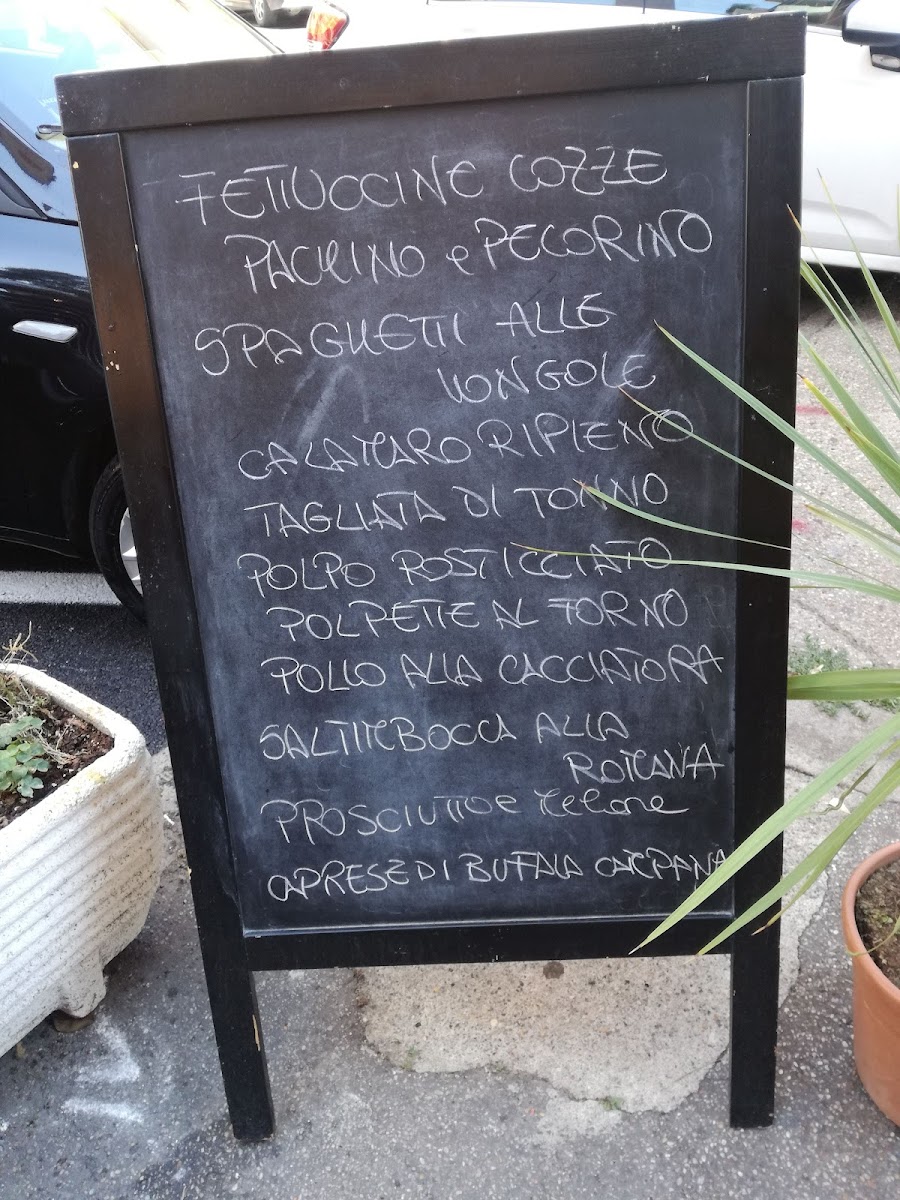 FETTUCCINE COZZE
PACHINO e PECORINO
SPAGHETTI ALLE
VONGOLE
CALAMARO RIPIENO
TAGLIATA DI TONNO
POLPO ROSTICCIATO
POLPETTE AL FORNO
POLLO ALLA CACCIATORA
SALTIMBOCCA ALLA
ROMANA
PROSCIUTTO e Melone
CAPRESE DI BUFALA CAMPANA